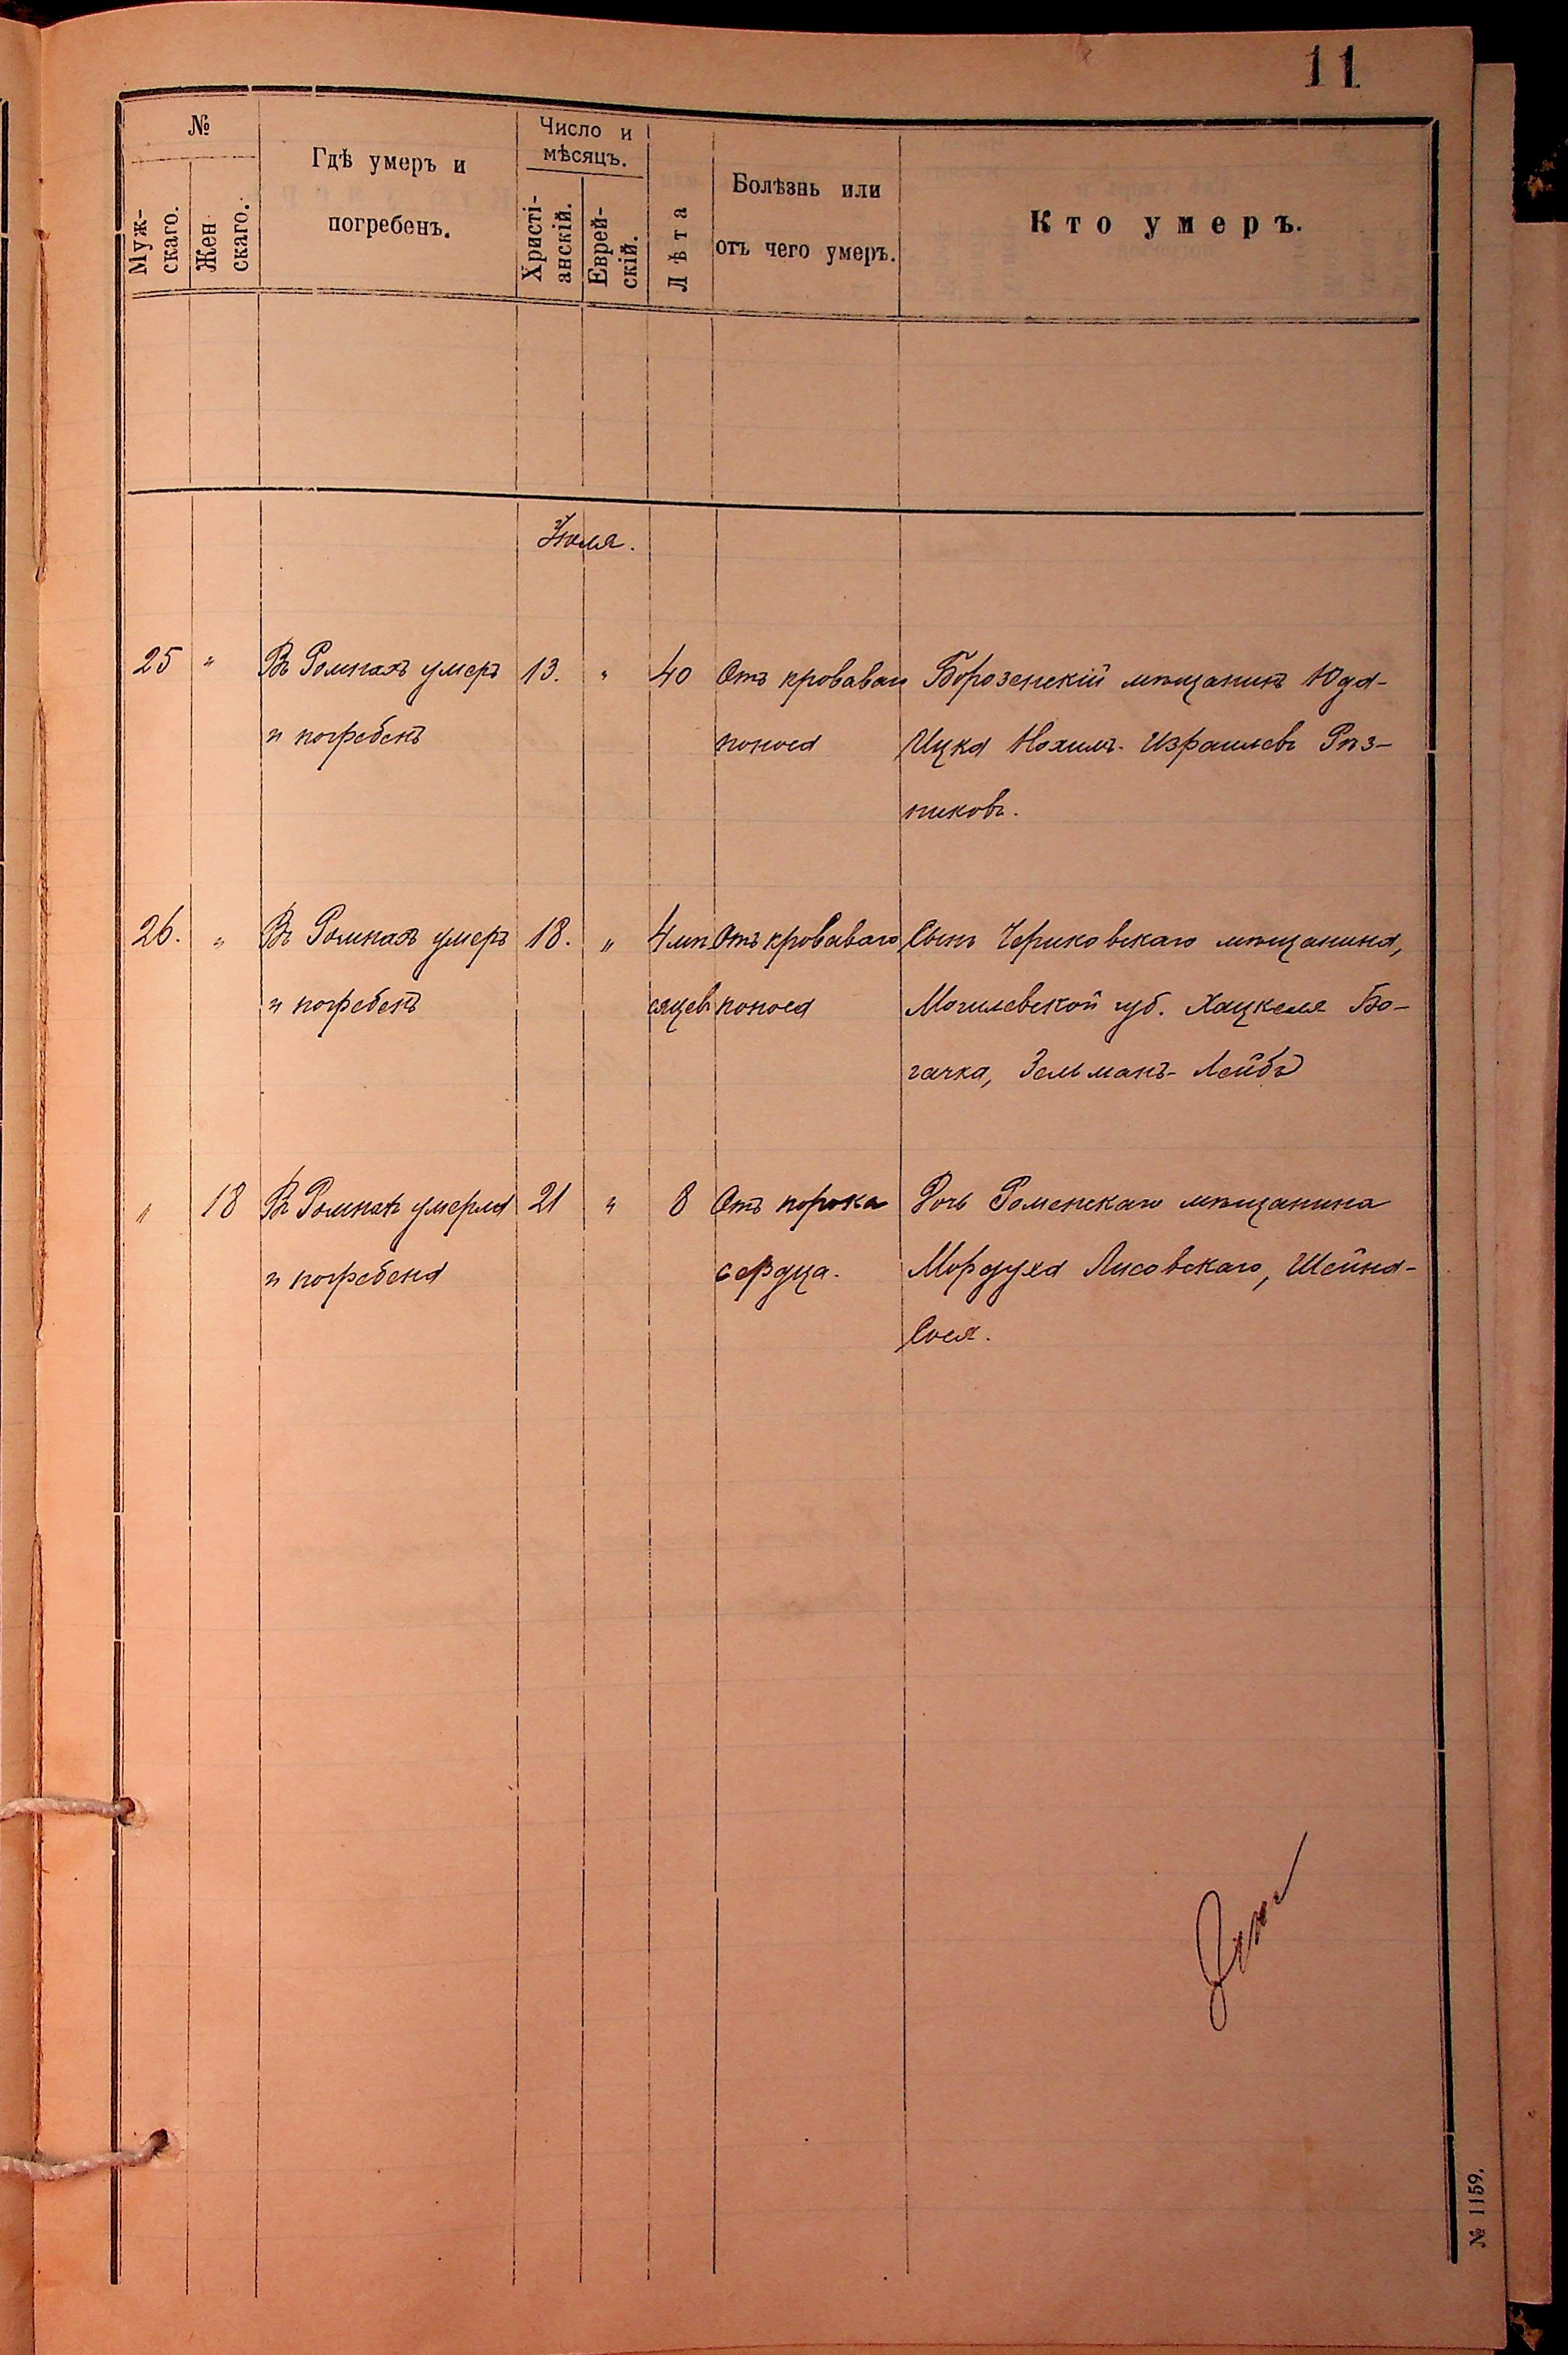 11
№
Муж-
скаго.
Жен
скаго.
Гдѣ умеръ и
погребенъ.
Число и
мѣсяцъ.
Христі-
анскій.
Еврей-
скій.
Лѣта
Болѣзнь или
отъ чего умеръ.
Кто умеръ.
Іюля.
25 " Въ Ромнахъ умеръ 13. " 40 Отъ кроваваго Борозенскій мѣщанинъ Юда-
и погребенъ поноса Ицка Нохимъ-Израилевъ Рѣз-
никовъ.
26. " Въ Ромнахъ умеръ 18. " 4 мѣ Отъ кроваваго Сынъ Чериковскаго мѣщанина,
и погребенъ сяцевъ поноса Могилевской губ. Хацкеля Бо-
гачка, Зельманъ-Лейба
" 18 Въ Ромнахъ умерла 21 " 8 Отъ порока Дочь Роменскаго мѣщанина
и погребена сердца. Мордуха Лисовскаго, Шейна-
Сося.
№ 1159.